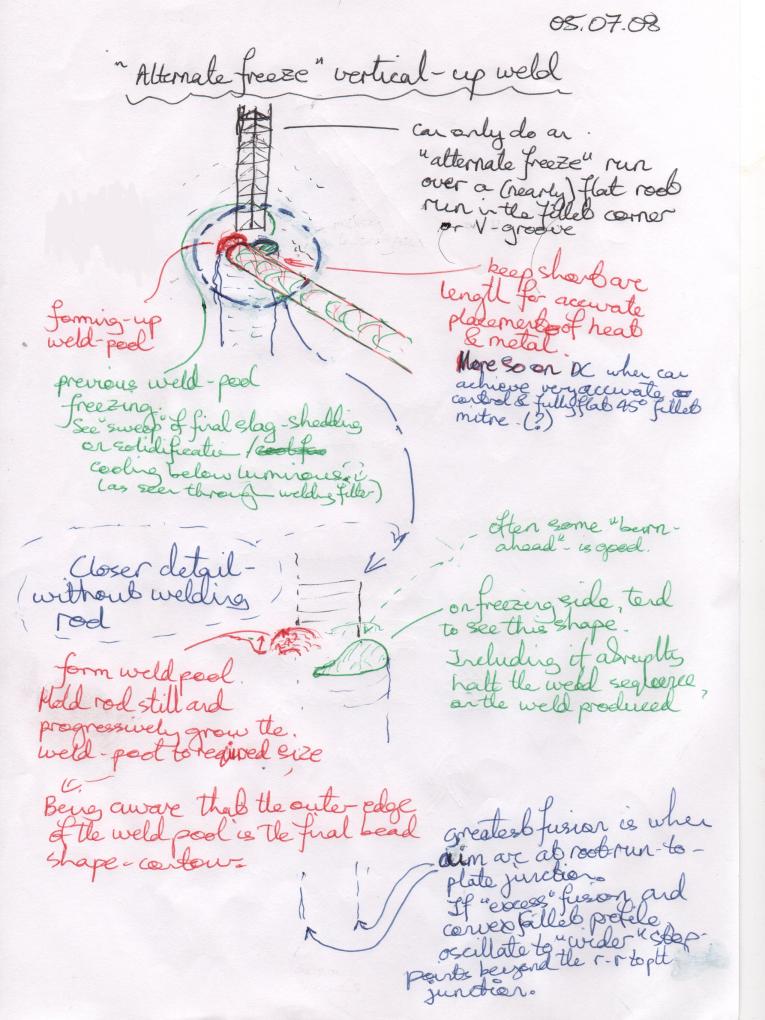 05.07.08
"Alternate freeze" vertical-up weld
can only do an
"alternate freeze" run
over a (nearly) flat root
run in the fillet corner
or V-groove
keep short arc
length for accurate
placement of heat
& metal.
More so on DC when can
achieve very accurate
control & fully flat 45° fillet
mitre. (?)
forming-up
weld-pool
previous weld-pool
freezing.
See "sweep" of final slag-shedding
or solidification /
cooling below luminous
(as seen through welding filter)
Closer detail-
without welding
rod
often some "burn-
ahead" - is good.
on freezing side, tend
to see this shape.
Including if abruptly
halt the weld sequence,
on the weld produced
form weld pool.
Hold rod still and
progressively grow the
weld-pool to required size
Being aware that the outer edge
of the weld pool is the final bead
shape-contour
greatest fusion is when
aim arc at root run-to-
plate junction.
If "excess" fusion and
convex fillet profile,
oscillate to "wider" stop-
points beyond the r-r to plt
junction.